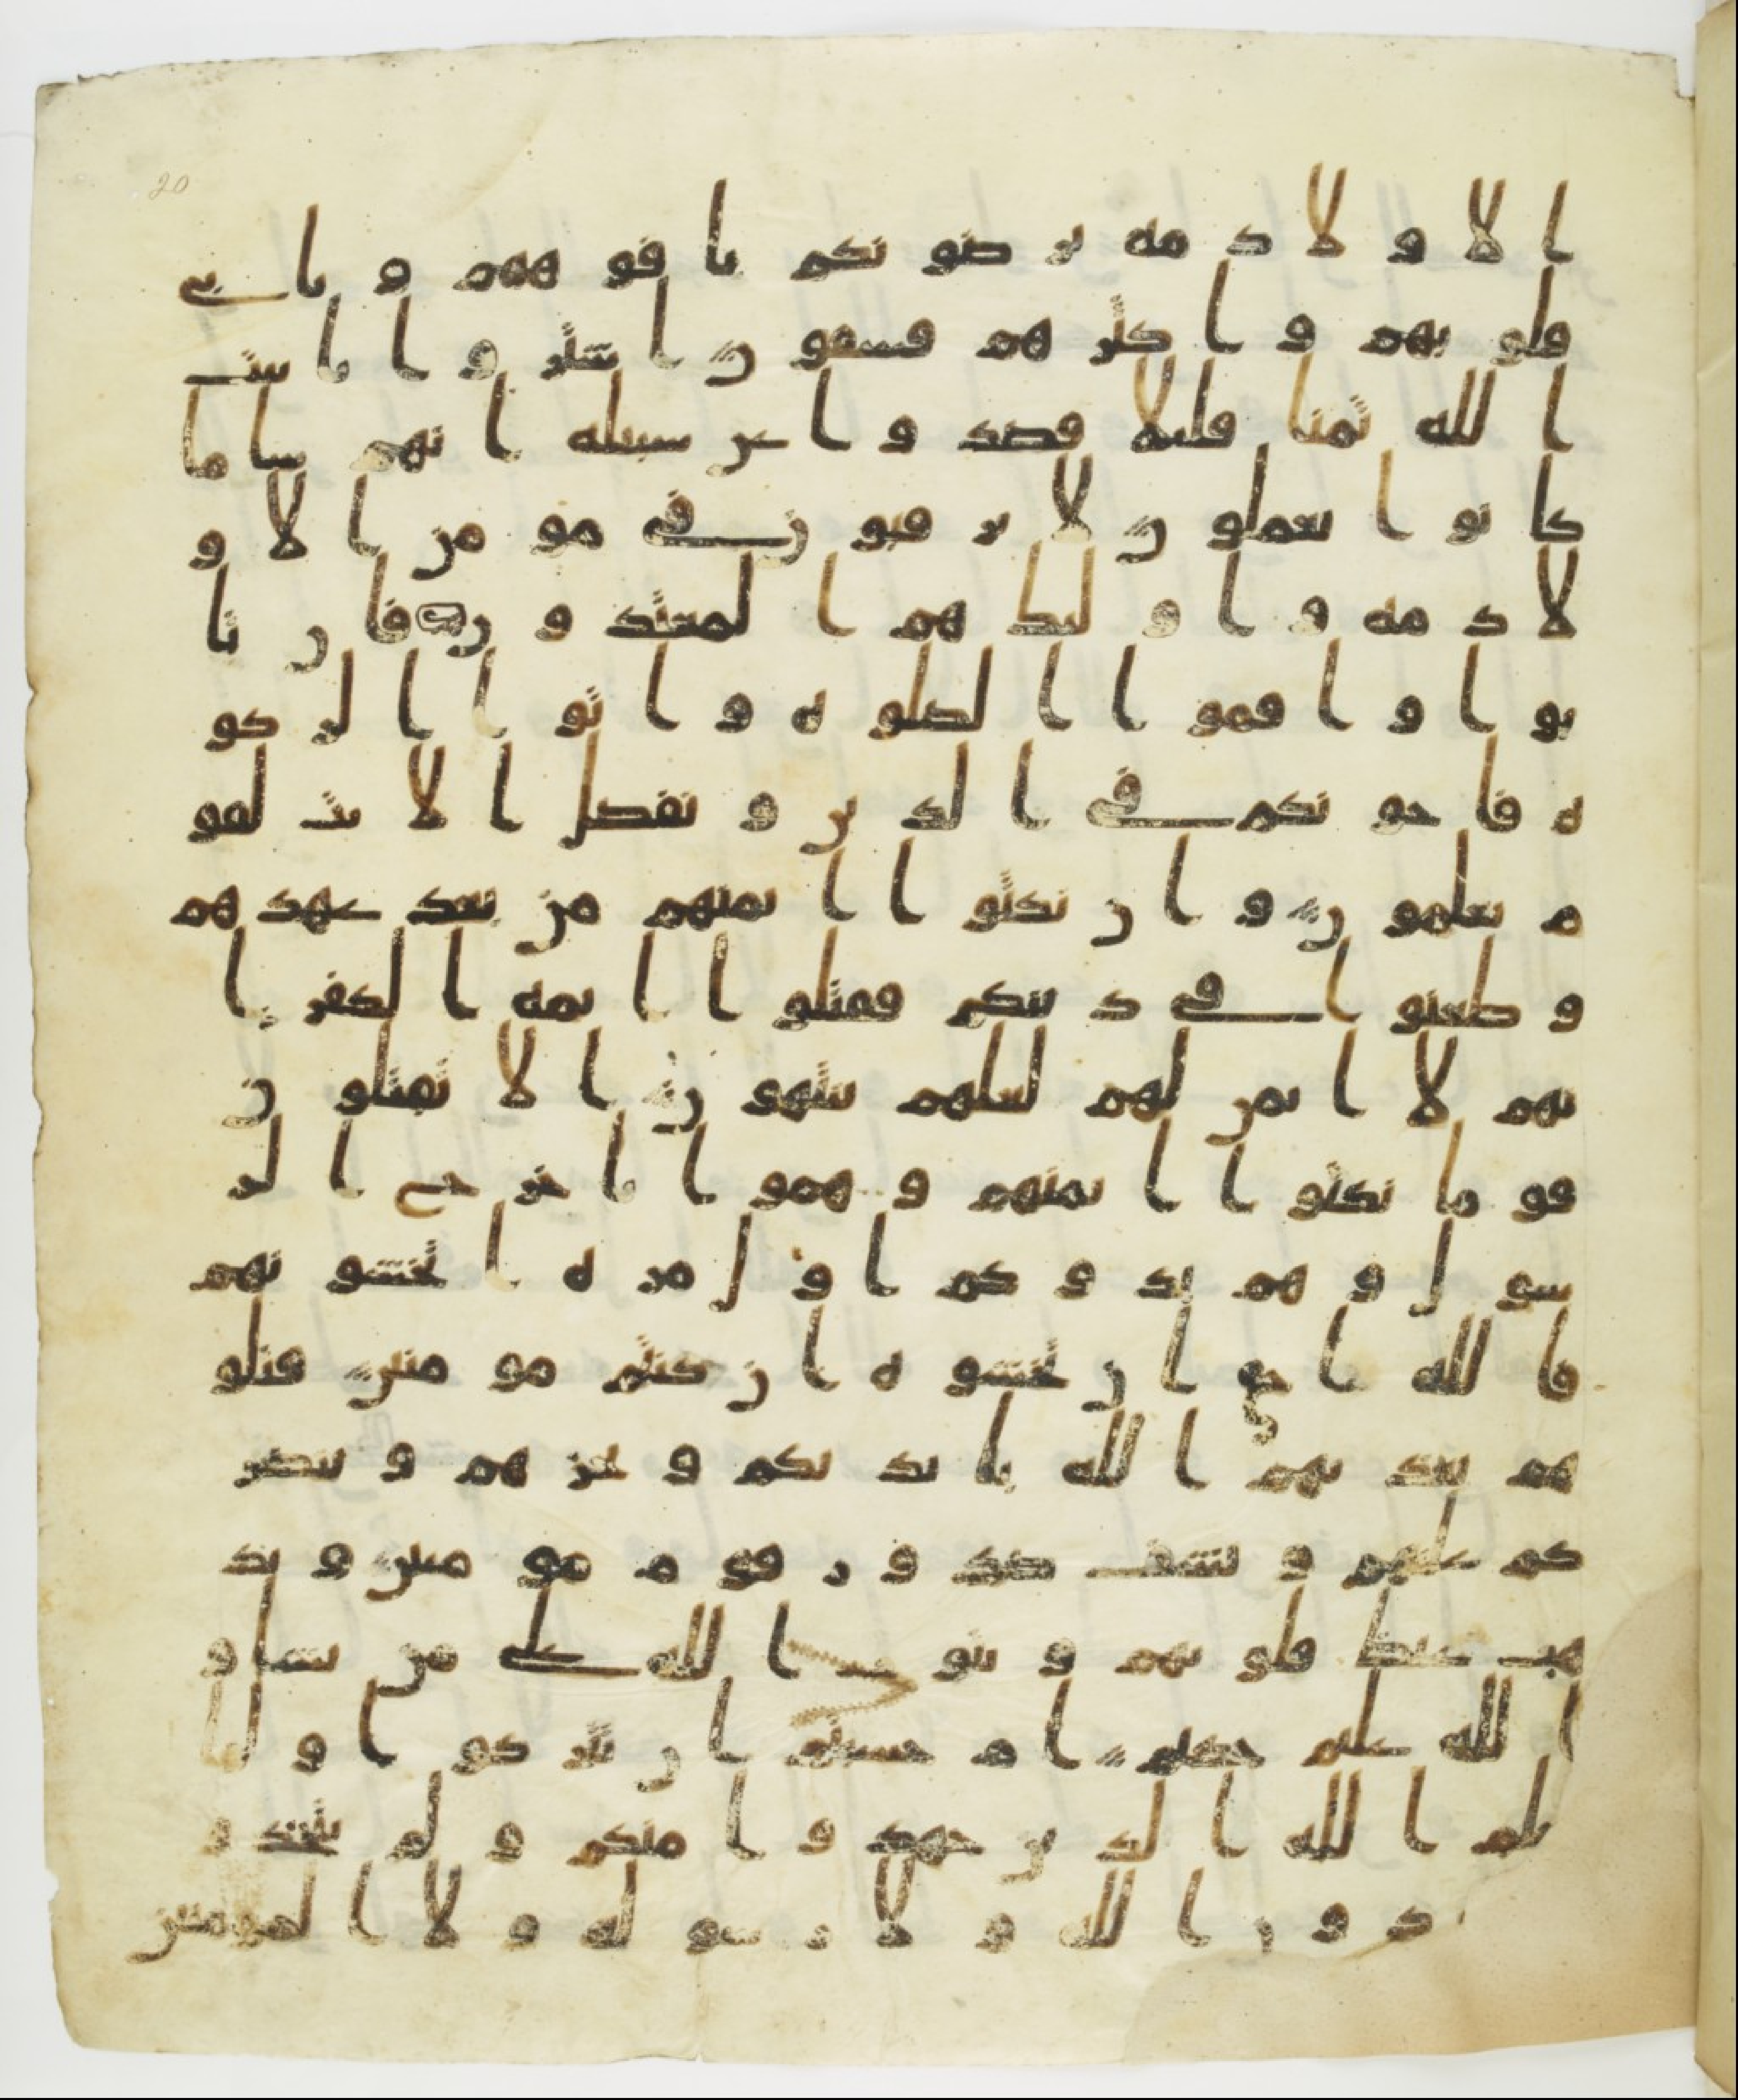 الا ولا ذمه يرضونكم بافوههم وتابى
قلوبهم واكثرهم فسقون اشتروا بايت
الله ثمنا قليلا فصدوا عن سبيله انهم سا ما
كانوا يعملون لا يرقبون فى مومن الا و
لا ذمه واوليك هم المعتدون فان تا
بوا واقاموا الصلوه واتوا الزكو
ه فاخونكم فى الدين ونفصل الايت لقو
م يعلمون وان نكثوا ايمنهم من بعد عهدهم
وطعنوا فى دينكم فقتلوا ايمه الكفر ا
نهم لا ايمن لهم لعلهم ينتهون الا تقتلون
قوما نكثوا ايمنهم وهموا باخرج الر
سول وهم بدوكم اول مره اتخشونهم
فالله احق ان تخشوه ان كنتم مومنين قتلو
هم يعذبهم الله بايديكم ويخزهم وينصر
كم عليهم ويشف صدور قوم مومنين ويذ
هب غيظ قلوبهم ويتوب الله على من يشا و
الله عليم حكيم ام حسبتم ان تتركوا ولما
يعلم الله الذين جهدوا منكم ولم يتخذو
ا من دون الله ولا رسوله ولا المومنين